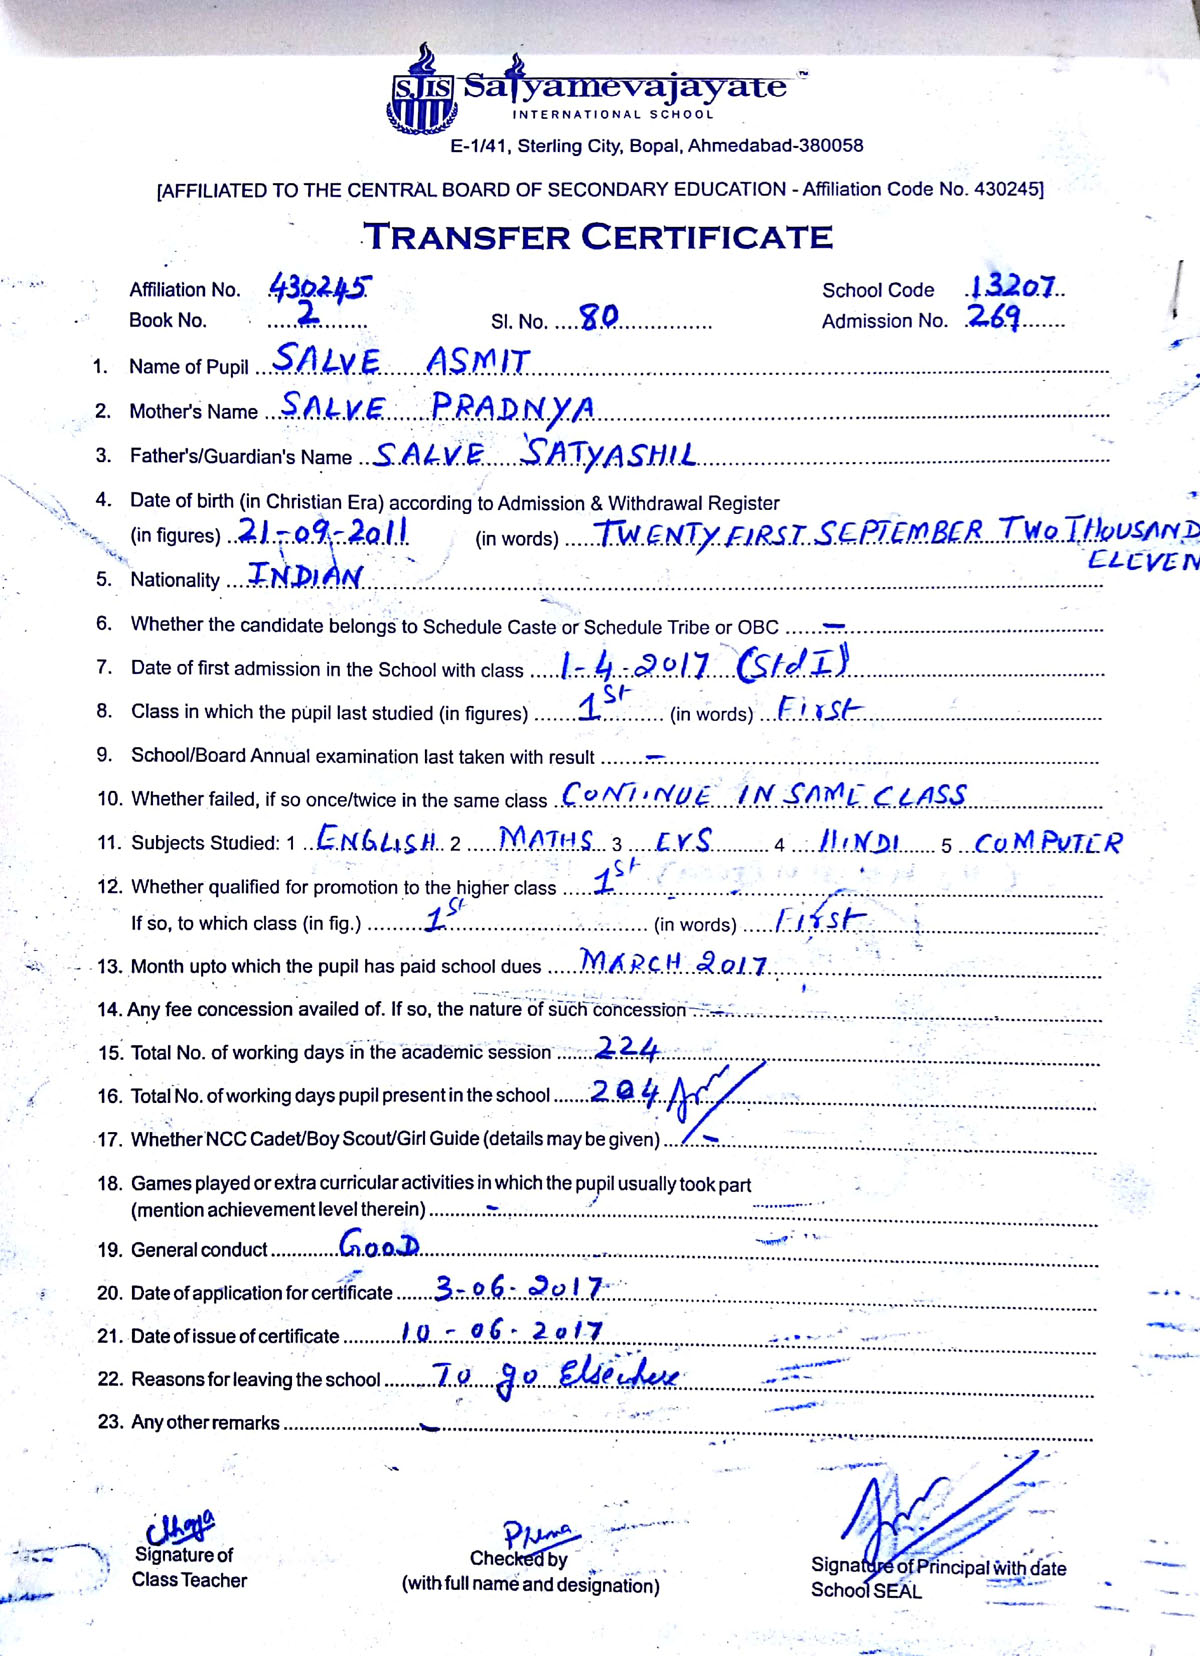 SJIS Satyamevajayate ™
INTERNATIONAL SCHOOL
E-1/41, Sterling City, Bopal, Ahmedabad-380058
[AFFILIATED TO THE CENTRAL BOARD OF SECONDARY EDUCATION - Affiliation Code No. 430245]
TRANSFER CERTIFICATE
Affiliation No. 430245 School Code 13207
Book No. 2 Sl. No. 80 Admission No. 269
1. Name of Pupil SALVE ASMIT
2. Mother's Name SALVE PRADNYA
3. Father's/Guardian's Name SALVE SATYASHIL
4. Date of birth (in Christian Era) according to Admission & Withdrawal Register
(in figures) 21-09-2011 (in words) TWENTY FIRST SEPTEMBER TWO THOUSAND
ELEVEN
5. Nationality INDIAN
6. Whether the candidate belongs to Schedule Caste or Schedule Tribe or OBC -
7. Date of first admission in the School with class 1-4-2017 (Std I)
8. Class in which the pupil last studied (in figures) 1st (in words) First
9. School/Board Annual examination last taken with result -
10. Whether failed, if so once/twice in the same class CONTINUE IN SAME CLASS
11. Subjects Studied: 1 ENGLISH 2 MATHS 3 EVS 4 HINDI 5 COMPUTER
12. Whether qualified for promotion to the higher class 1st
If so, to which class (in fig.) 1st (in words) First
13. Month upto which the pupil has paid school dues MARCH 2017
14. Any fee concession availed of. If so, the nature of such concession -
15. Total No. of working days in the academic session 224
16. Total No. of working days pupil present in the school 204
17. Whether NCC Cadet/Boy Scout/Girl Guide (details may be given) -
18. Games played or extra curricular activities in which the pupil usually took part
(mention achievement level therein) -
19. General conduct GOOD
20. Date of application for certificate 3-06-2017
21. Date of issue of certificate 10-06-2017
22. Reasons for leaving the school To go Elsewhere
23. Any other remarks -
Chhaya Prerna
Signature of Checked by Signature of Principal with date
Class Teacher (with full name and designation) School SEAL